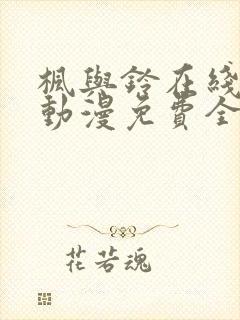 楓與鈴在綫
動漫免費全
花若魂